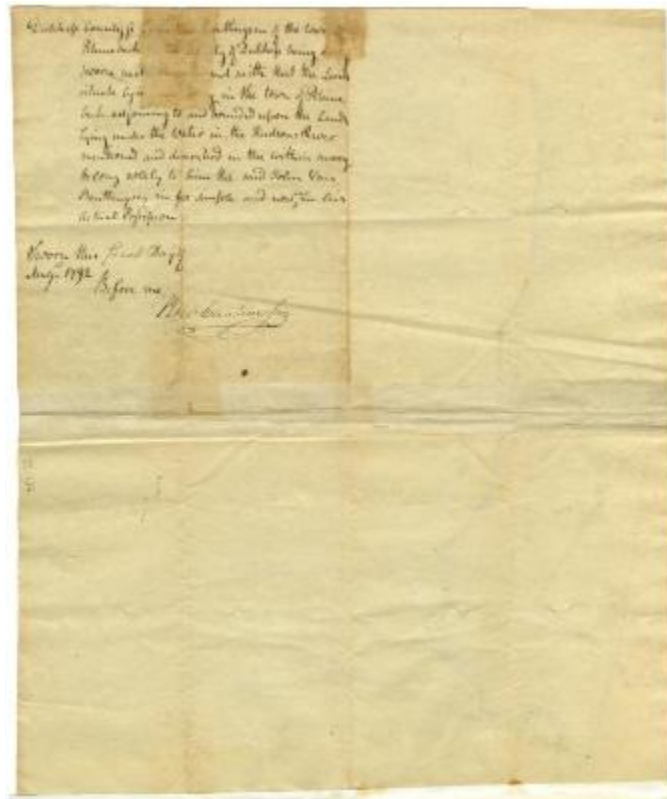 Dutchess County ss John Van Benthuysen of the town of
Rhinebeck County of Dutchess being
sworn and saith that the Land
situate lying in the town of Rhine
beck adjoining to and bounded upon the Land
lying under the Water in the Hudsons River
mentioned and described in the within
belong solely to him the said John Van
Benthuysen in fee simple and now in his
actual Possession
Sworn this first Day of
Augt. 1792
Before me